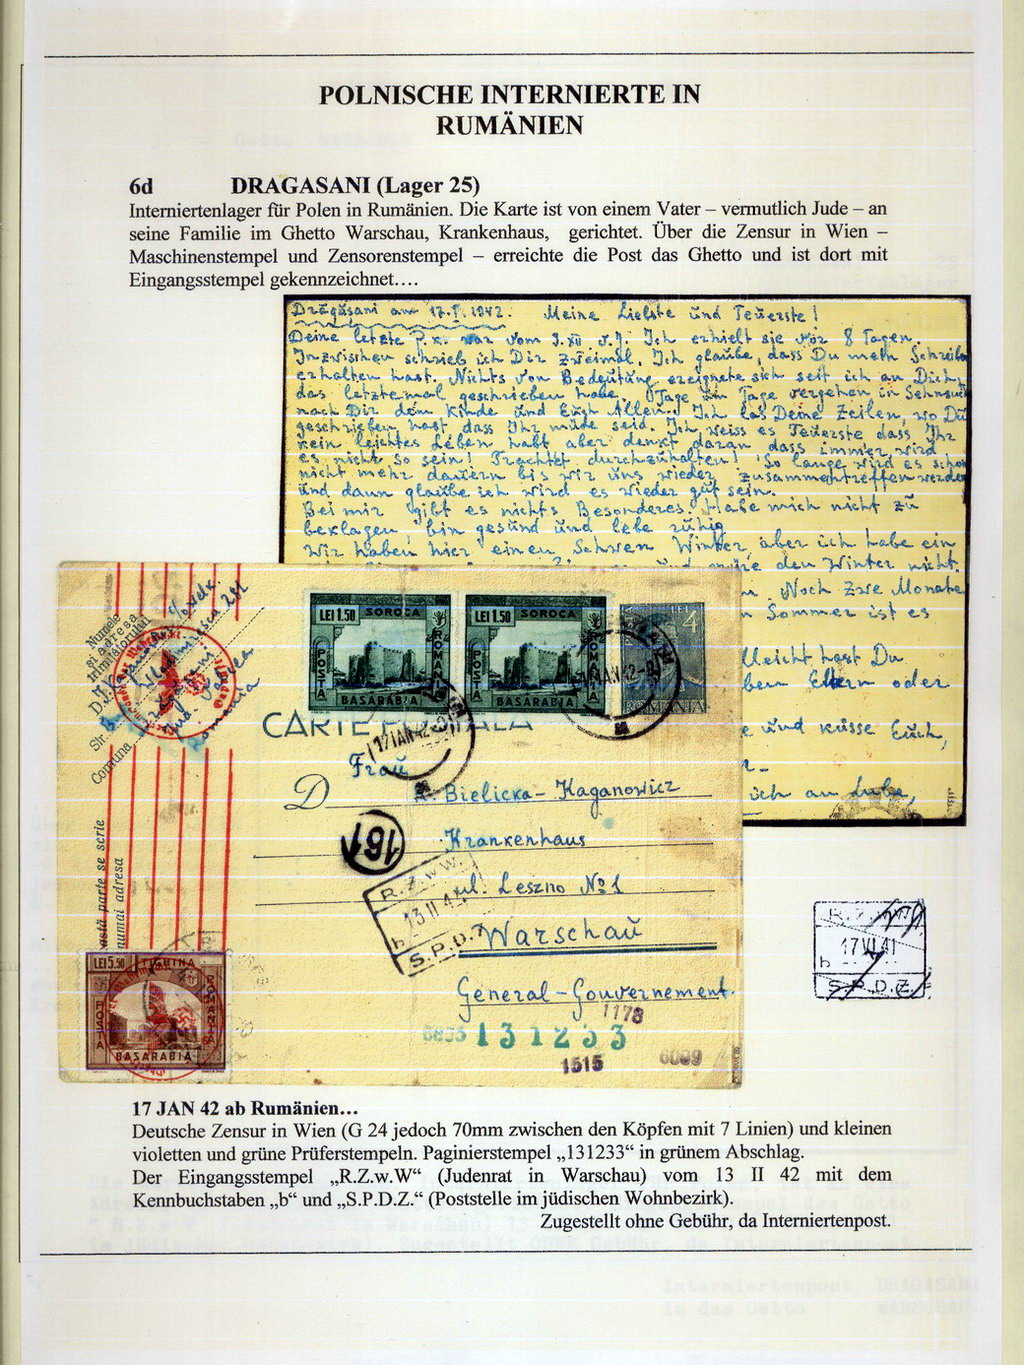 POLNISCHE INTERNIERTE IN
RUMÄNIEN
6d DRAGASANI (Lager 25)
Interniertenlager für Polen in Rumänien. Die Karte ist von einem Vater – vermutlich Jude – an
seine Familie im Ghetto Warschau, Krankenhaus, gerichtet. Über die Zensur in Wien –
Maschinenstempel und Zensorenstempel – erreichte die Post das Ghetto und ist dort mit
Eingangsstempel gekennzeichnet….
Drăgăsani am 17.I.1942. Meine Liebste und Teuerste!
Deine letzte P.K. war vom 3.XII v.J. Ich erhielt sie vor 8 Tagen.
Inzwischen schrieb ich Dir zweimal. Ich glaube, dass Du mein Schreiben
erhalten hast. Nichts von Bedeutung ereignete sich seit ich an Dich
das letztemal geschrieben habe. Tage um Tage vergehen in Sehnsucht
nach Dir dem Kinde und Euch Allen. Ich las Deine Zeilen, wo Du
geschrieben hast, dass Ihr müde seid. Ich weiss es Teuerste dass Ihr
kein leichtes Leben habt aber denkt daran dass immer wird
es nicht so sein! Trachtet durchzuhalten! So lange wird es schon
nicht mehr dauern bis wir uns wieder zusammentreffen werden
und dann glaube ich wird es wieder gut sein.
Bei mir gibt es nichts Besonderes. Habe mich nicht zu
beklagen, bin gesund und lebe ruhig
Wir haben hier einen Schweren Winter, aber ich habe ein
den Winter nicht.
Noch zwe Monate
Sommer ist es
lleicht hast Du
ben Eltern oder
und küsse Euch,
ich an Luba,
Numele
si adresa
trimitatorului
D.
Str.
Comuna
Dragasani
Jud Valcea
Romania
LEI 1.50 SOROCA
POSTA ROMANIA
BASARABIA
LEI 1.50 SOROCA
POSTA ROMANIA
BASARABIA
LEI 4
ROMANIA
17 IAN 42
17 IAN 42
CARTE POSTALA
Frau
D R. Bielicka-Kaganowicz
161
Krankenhaus
R.Z.w W.
13 II 42
b
S.P.D.Z
ul. Leszno №1
Warschau
General-Gouvernement
astă parte se scrie
numai adresa
LEI 5.50 TIGHINA
POSTA ROMANIA
BASARABIA
1178
6835 131233
1515 6099
R.Z.w W
17 VI 41
b
S.P.D.Z.
17 JAN 42 ab Rumänien…
Deutsche Zensur in Wien (G 24 jedoch 70mm zwischen den Köpfen mit 7 Linien) und kleinen
violetten und grüne Prüferstempeln. Paginierstempel „131233“ in grünem Abschlag.
Der Eingangsstempel „R.Z.w.W“ (Judenrat in Warschau) vom 13 II 42 mit dem
Kennbuchstaben „b“ und „S.P.D.Z.“ (Poststelle im jüdischen Wohnbezirk).
Zugestellt ohne Gebühr, da Interniertenpost.